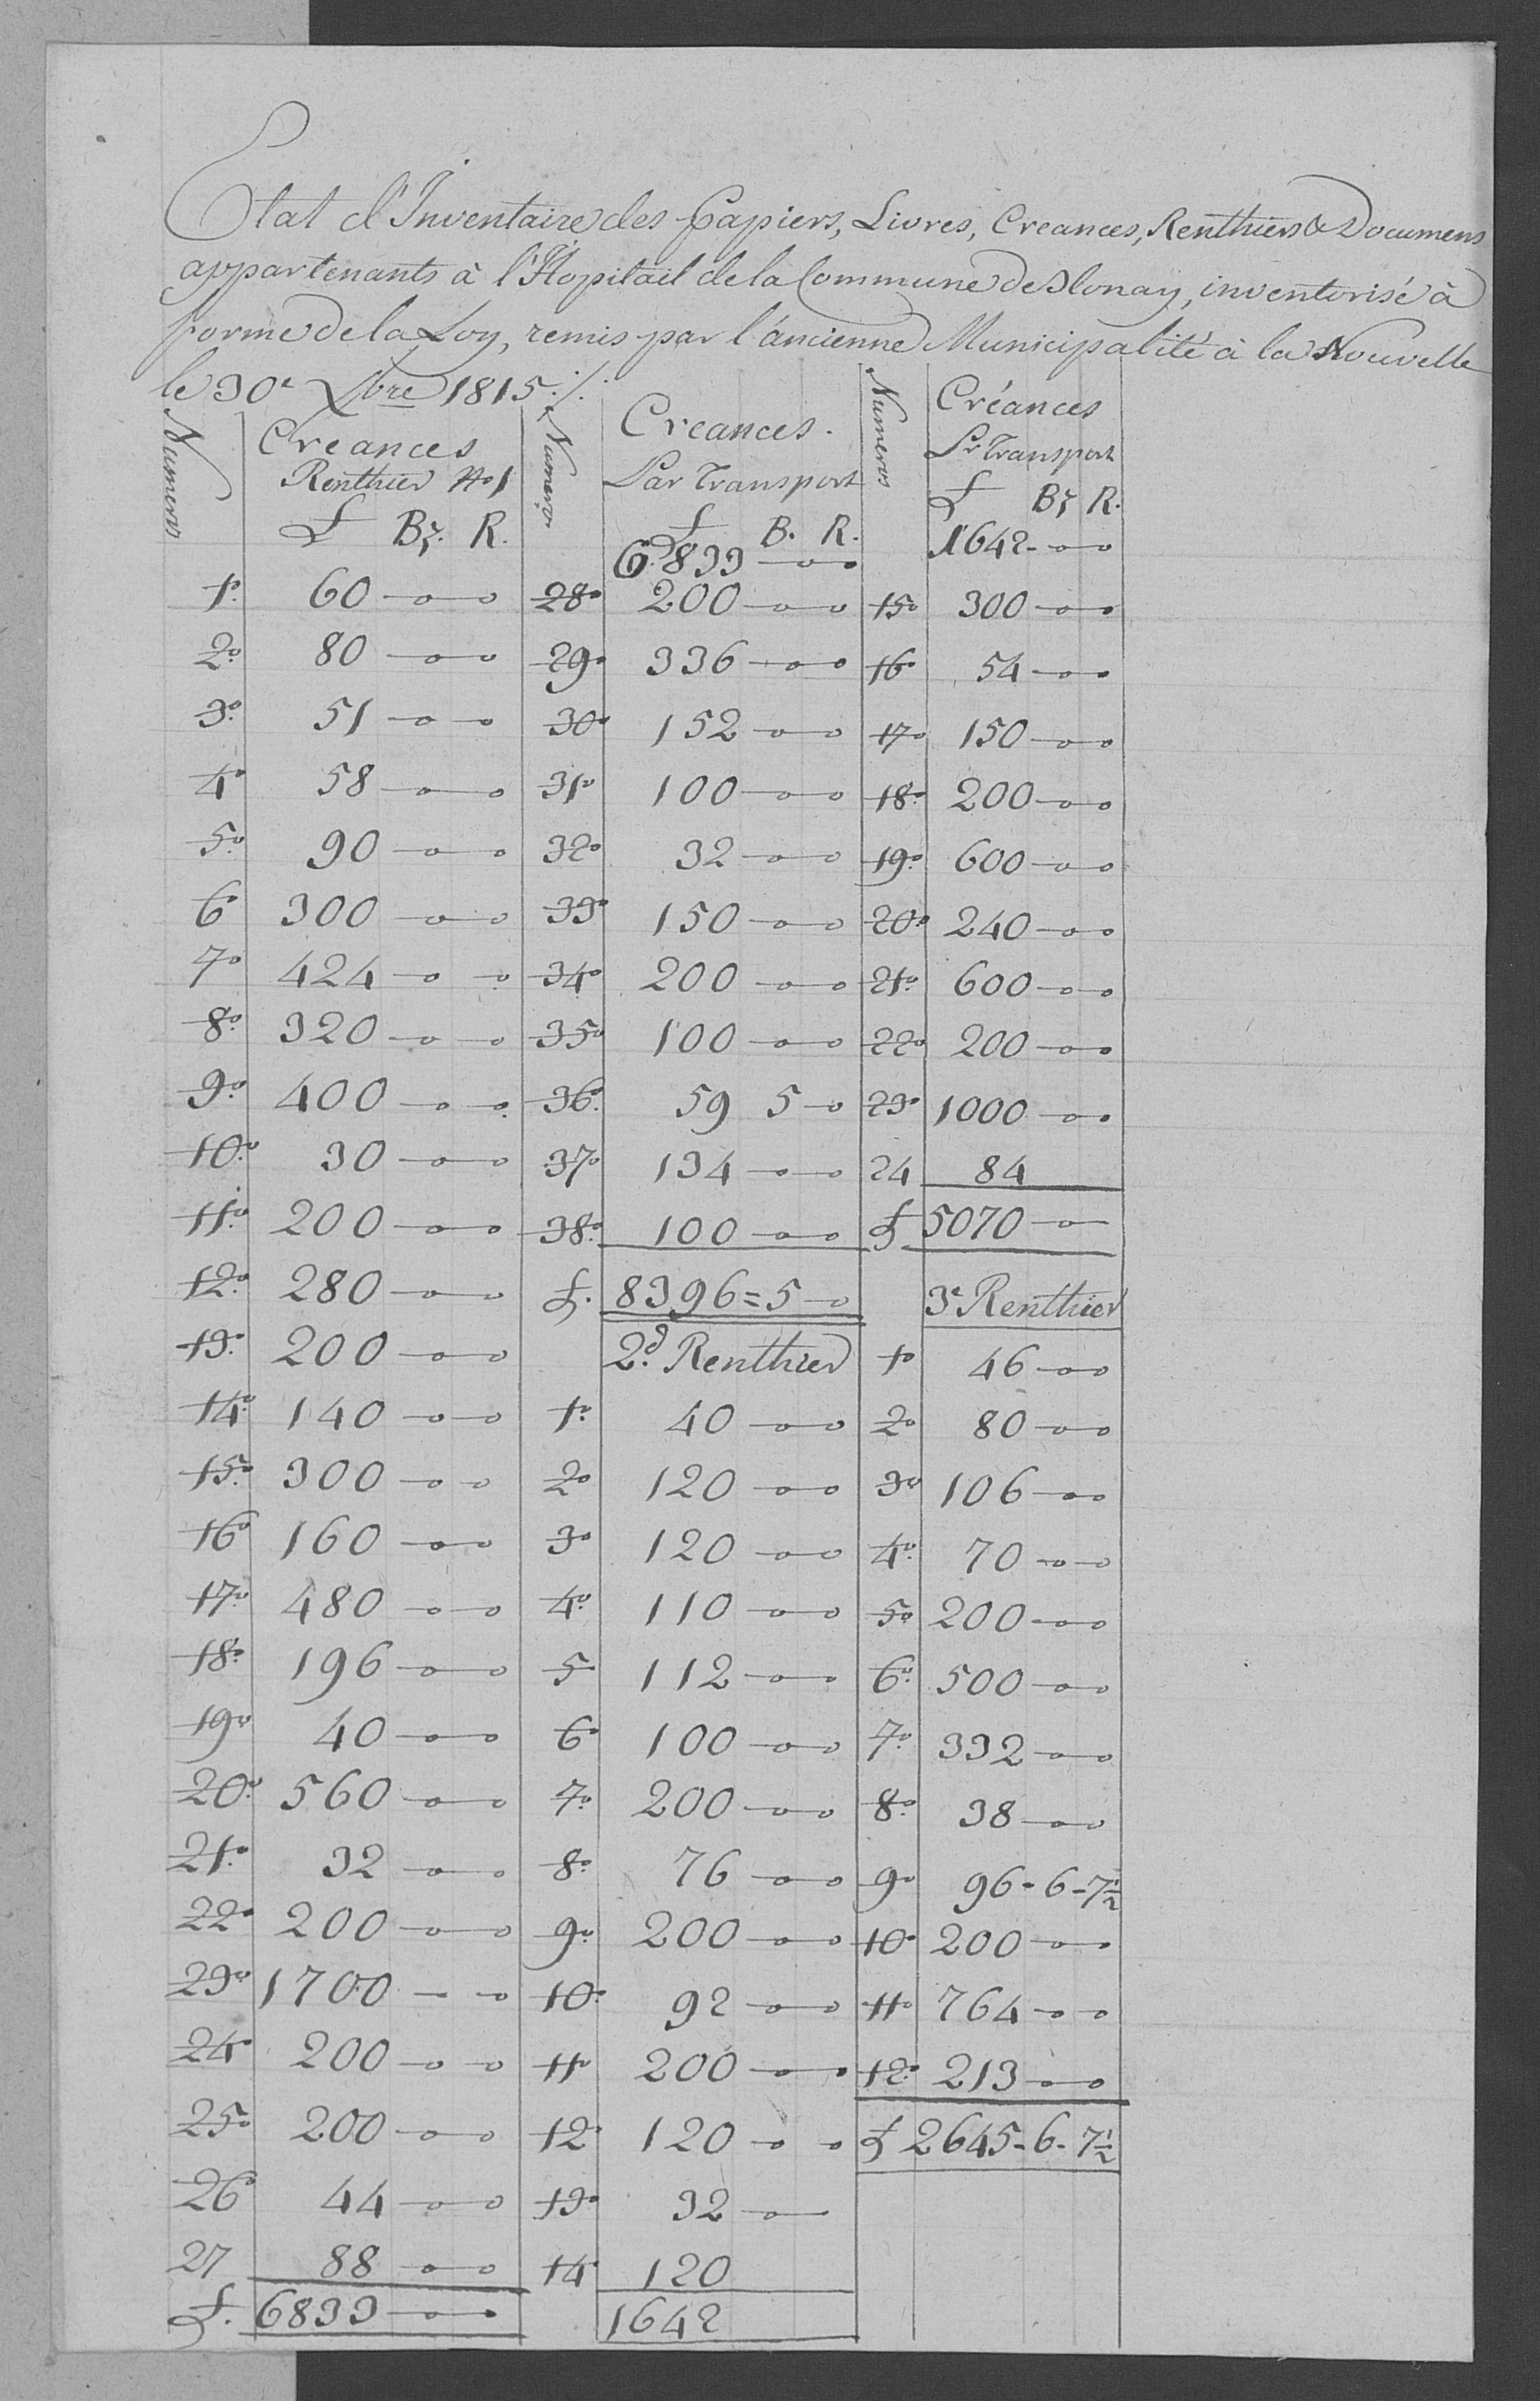 Etat d'Inventaire des Papiers, Livres, Creances, Renthiers & Documens
appartenants à l'Hopitail de la Commune de Blonay, inventorisé à
forme de la Loy, remis par l'ancienne Municipalité à la Nouvelle
le 30e Xbre 1815 ./.
Numeros
Creances
Renthier No 1
£ Bz. R.
1o. 60 -o-o
2o. 80 -o-o
3o. 51 -o-o
4o 58 -o-o
5o. 90 -o-o
6o 300 -o-o
7o 424 -o-o
8o. 320 -o-o
9o. 400 -o-o
10o. 30 -o-o
11o. 200 -o-o
12o. 280 -o-o
13o. 200 -o-o
14o. 140 -o-o
15o. 300 -o-o
16o 160 -o-o
17o. 480 -o-o
18o. 196 -o-o
19o 40 -o-o
20o. 560 -o-o
21o. 32 -o-o
22o 200 -o-o
23o 1700 - -o
24o 200 -o-o
25o 200 -o-o
26o 44 -o-o
27 88 -o-o
£. 6833 -o-o
Numero.
Creances.
Par Transport
£ B. R.
6833 -o-o
28o 200 -o-o
29o 336 -o-o
30o 152 -o-o
31o 100 -o-o
32o 32 -o-o
33o 150 -o-o
34o 200 -o-o
35o 100 -o-o
36o. 59 5 -o
37o 134 -o-o
38o. 100 -o-o
£. 8396=5 -o
2d. Renthier
1o. 40 -o-o
2o 120 -o-o
3o 120 -o-o
4o. 110 -o-o
5 112 -o-o
6o 100 -o-o
7o. 200 -o-o
8o. 76 -o-o
9o. 200 -o-o
10o. 92 -o-o
11o 200 -o-o
12 120 -o-o
13o 32 -o-
14 120
1642
Numeros
Créances
Pr Transport
£ Bz R.
1642 -o-o
15o 300 -o-o
16o 54 -o-o
17o 150 -o-o
18o. 200 -o-o
19o. 600 -o-o
20o. 240 -o-o
21o. 600 -o-o
22o 200 -o-o
23o 1000 -o-o
24 84
£ 5070 -o-
3e Renthier
1o 46 -o-o
2o 80 -o-o
3o 106 -o-o
4o. 70 -o-o
5o 200 -o-o
6o. 500 -o-o
7o. 332 -o-o
8o. 38 -o-o
9o 96-6-7½
10o 200 -o-o
11o 764 -o-o
12o. 213 -o-o
£ 2645-6-7½